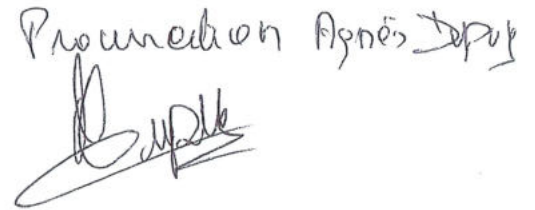 Procuration Agnès Dupuy